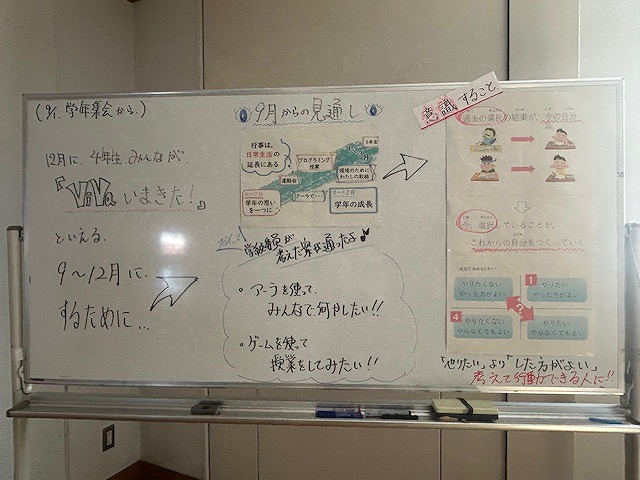 (9/1. 学年集会から.)
12月に、4年生 みんなが
『ViVa いまきた!』
といえる.
9〜12月に.
するために...
9月からの見通し
行事は、
日常生活の
延長にある
プログラミング
授業
運動会
アーラで…
5年生
環境のために
わたしの取組
学年の思い
を一つに
9〜12月
学年の成長
学級委員が
考えた案が通ったよ♪
・アーラを使って、
みんなで何やしたい!!
・ゲームを使って
授業をしてみたい!!
意識すること
過去の選択の結果が、今の自分
今、選択していることが、
これからの自分をつくっていく
やりたくない
やった方がよい
1
やりたい
やった方がよい
4
やりたくない
やらなくてもよい
?
やりたい
やらなくてもよい
「やりたい」より「した方がよい」
考えて行動できる人に!!